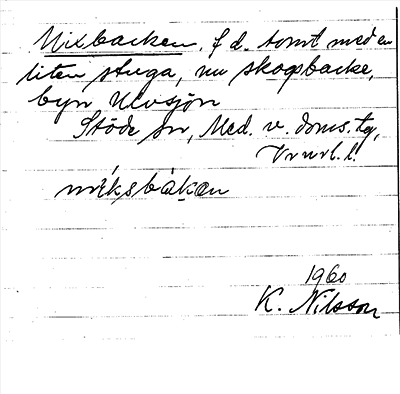 Mixbacken, f d. tomt med en
liten stuga, nu skogsbacke,
byn Ulvsjön
Stöde sn, Med. v. doms. tg,
Vnrl. l.
míksbàkæn
1960
K. Nilsson